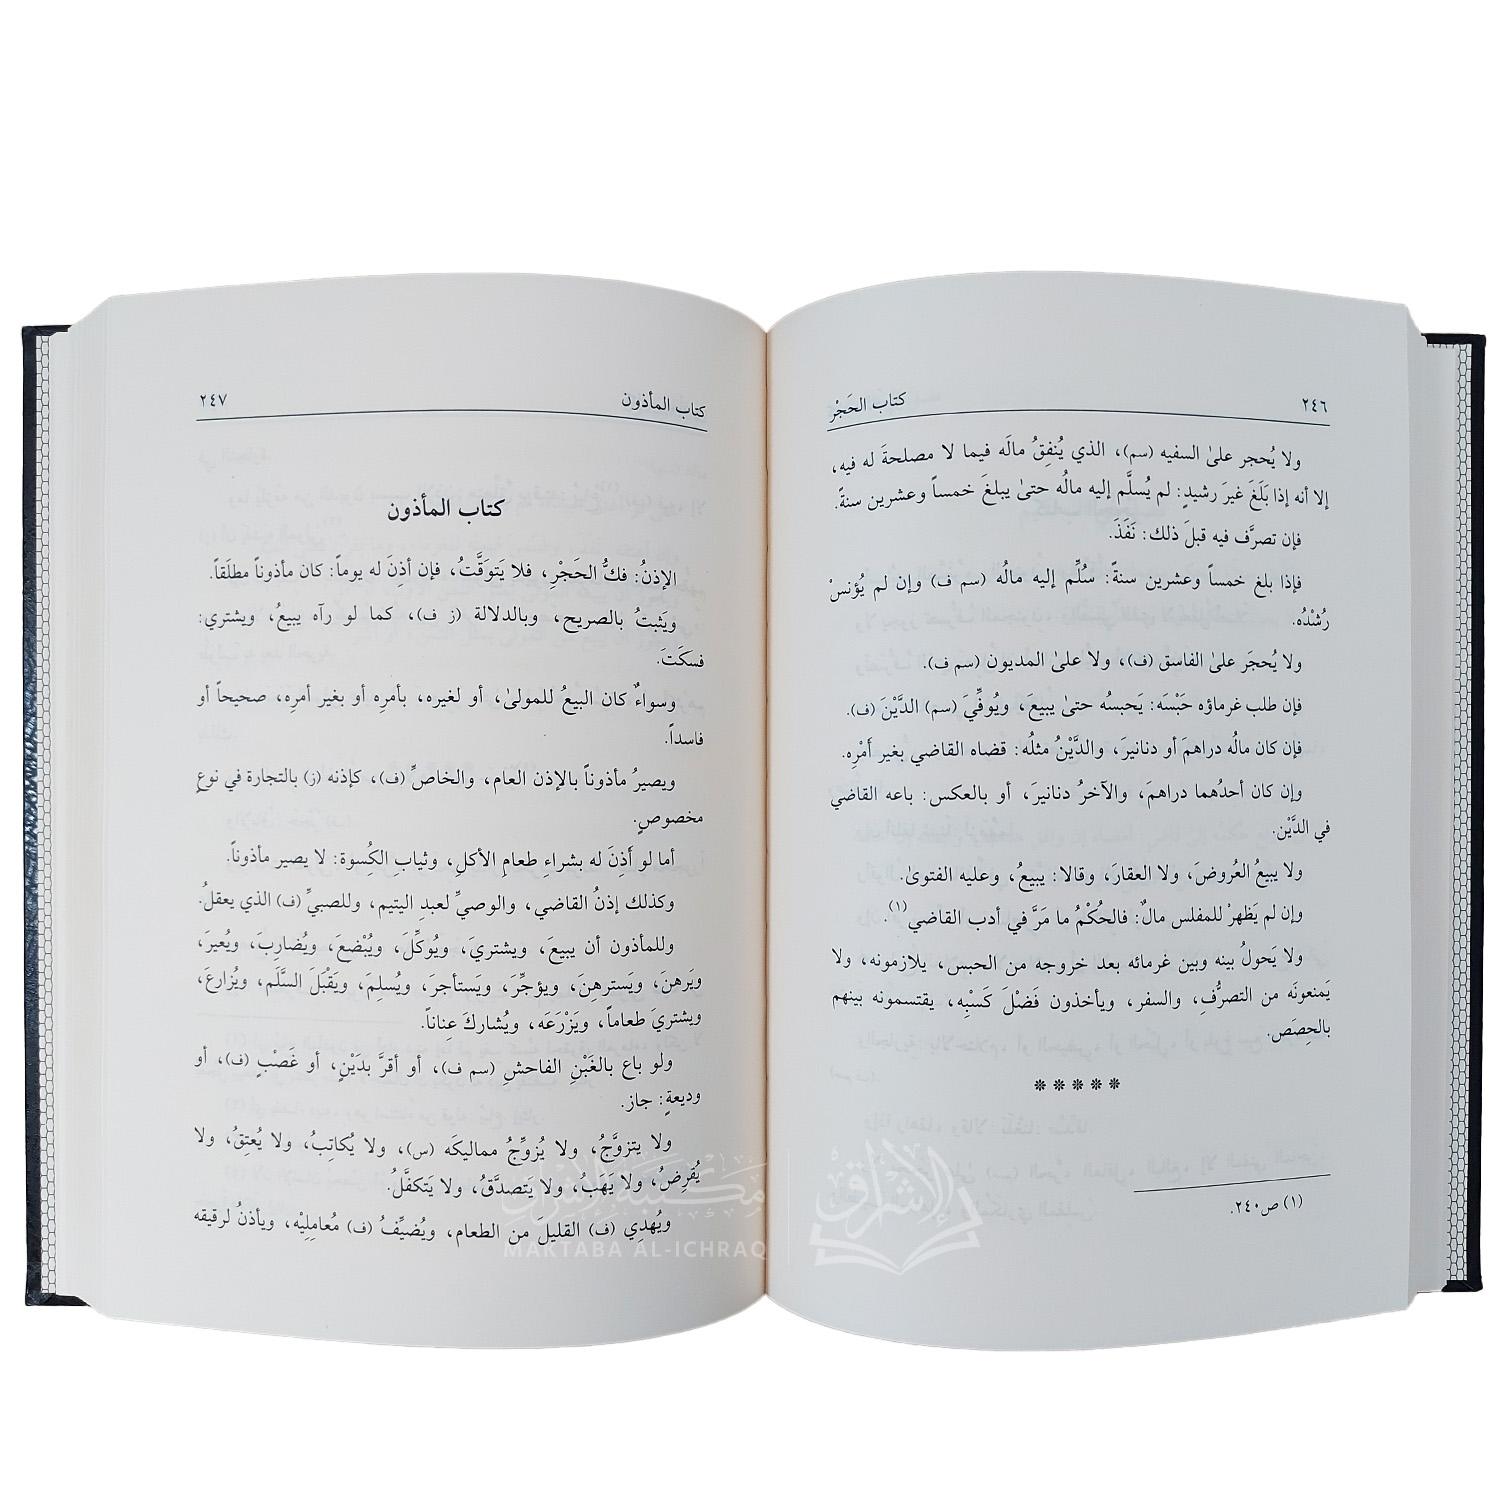 ٢٤٦ كتاب الحَجْر
ولا يُحجر علىٰ السفيه (سم)، الذي يُنفِقُ مالَه فيما لا مصلحةَ له فيه،
إلا أنه إذا بَلَغَ غيرَ رشيدٍ: لم يُسلَّم إليه مالُه حتىٰ يبلغَ خمساً وعشرين سنةً.
فإن تصرَّف فيه قبلَ ذلك: نَفَذَ.
فإذا بلغ خمساً وعشرين سنةً: سُلِّم إليه مالُه (سم ف) وإن لم يُؤنسْ
رُشْدُه.
ولا يُحجَر علىٰ الفاسق (ف)، ولا علىٰ المديون (سم ف).
فإن طلب غرماؤه حَبْسَه: يَحبسُه حتىٰ يبيعَ، ويُوفِّيَ (سم) الدَّيْنَ (ف).
فإن كان مالُه دراهمَ أو دنانيرَ، والدَّيْنُ مثلُه: قضاه القاضي بغير أَمْرِه.
وإن كان أحدُهما دراهمَ، والآخرُ دنانيرَ، أو بالعكس: باعه القاضي
في الدَّيْن.
ولا يبيعُ العُروضَ، ولا العقارَ، وقالا: يبيعُ، وعليه الفتوىٰ.
وإن لم يَظهرْ للمفلس مالٌ: فالحُكْمُ ما مَرَّ في أدب القاضي(١).
ولا يَحولُ بينه وبين غرمائه بعد خروجه من الحبس، يلازمونه، ولا
يَمنعونَه من التصرُّفِ، والسفر، ويأخذون فَضْلَ كَسْبِه، يقتسمونه بينهم
بالحِصَص.
*****
(١) ص٢٤٠.
كتاب المأذون ٢٤٧
كتاب المأذون
الإذنُ: فكُّ الحَجْرِ، فلا يَتوَقَّتُ، فإن أذِنَ له يوماً: كان مأذوناً مطلَقاً.
ويَثبتُ بالصريح، وبالدلالة (ز ف)، كما لو رآه يبيعُ، ويشتري:
فسكَتَ.
وسواءٌ كان البيعُ للمولىٰ، أو لغيره، بأمرِه أو بغير أمرِه، صحيحاً أو
فاسداً.
ويصيرُ مأذوناً بالإذن العام، والخاصِّ (ف)، كإذنه (ز) بالتجارة في نوعٍ
مخصوصٍ.
أما لو أَذِنَ له بشراء طعامِ الأكلِ، وثيابِ الكِسوة: لا يصير مأذوناً.
وكذلك إذنُ القاضي، والوصيِّ لعبدِ اليتيم، وللصبيِّ (ف) الذي يعقلُ.
وللمأذون أن يبيعَ، ويشتريَ، ويُوكِّلَ، ويُبْضعَ، ويُضارِبَ، ويُعيرَ،
ويَرهنَ، ويَسترهِنَ، ويؤجِّرَ، ويَستأجرَ، ويُسلِمَ، ويَقْبَلَ السَّلَمَ، ويُزارعَ،
ويشتريَ طعاماً، ويَزْرَعَه، ويُشاركَ عِناناً.
ولو باع بالغَبْنِ الفاحشِ (سم ف)، أو أقرَّ بدَيْنٍ، أو غَصْبٍ (ف)، أو
وديعةٍ: جاز.
ولا يتزوَّجُ، ولا يُزوِّجُ مماليكَه (س)، ولا يُكاتِبُ، ولا يُعتِقُ، ولا
يُقرِضُ، ولا يَهَبُ، ولا يَتصدَّقُ، ولا يَتكفَّلُ.
ويُهدِي (ف) القليلَ من الطعام، ويُضيِّفُ (ف) مُعامِلِيْه، ويأذنُ لرقيقه
مكتبة الإشراق
MAKTABA AL-ICHRAQ
الإشراق